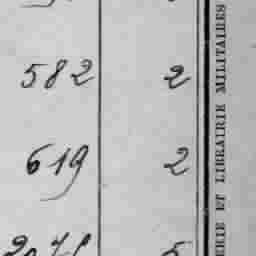 582 2
619 2
ERIE ET LIBRAIRIE MILITAIRES